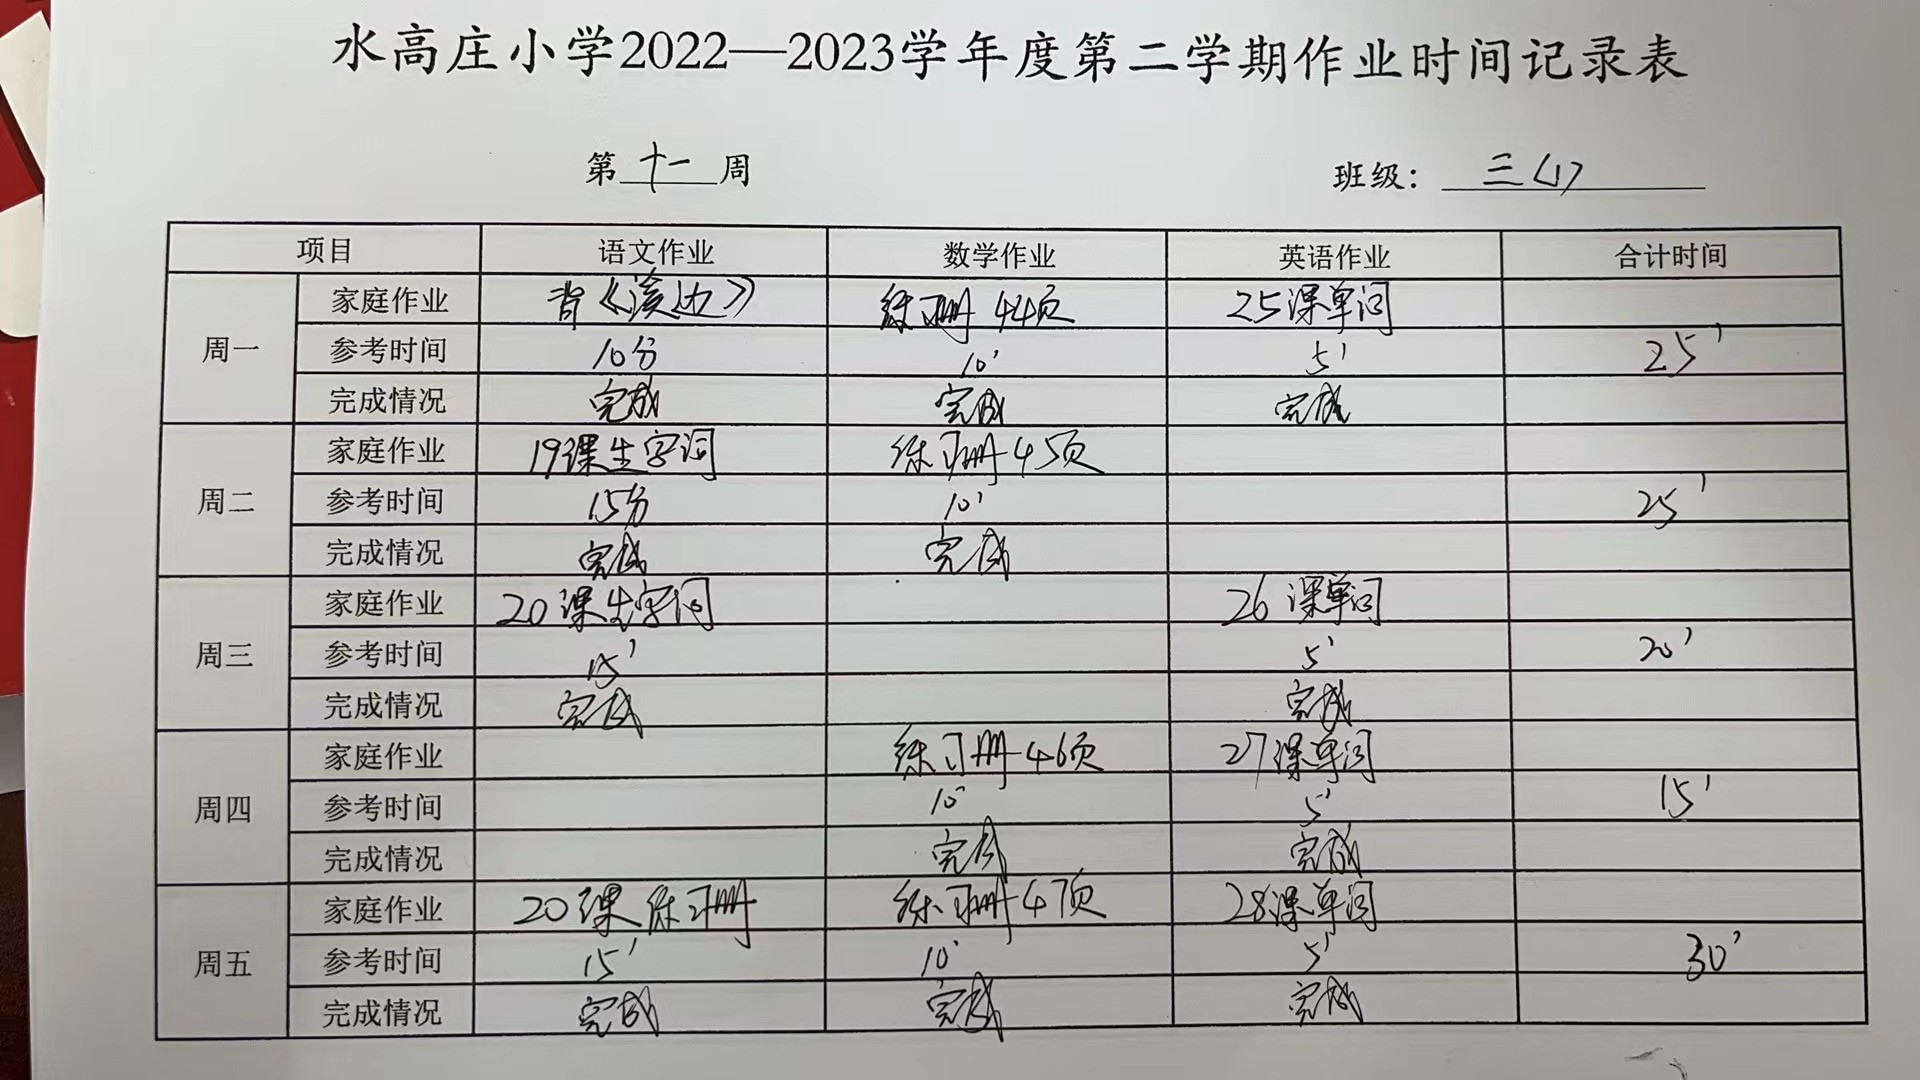 水高庄小学2022—2023学年度第二学期作业时间记录表
第十一周 班级：三(1)
项目 语文作业 数学作业 英语作业 合计时间
周一
家庭作业 背《溪边》 练习册44页 25课单词
参考时间 10分 10' 5' 25'
完成情况 完成 完成 完成
周二
家庭作业 19课生字词 练习册45页
参考时间 15分 10' 25'
完成情况 完成 完成
周三
家庭作业 20课生字词 26课单词
参考时间 15' 5' 20'
完成情况 完成 完成
周四
家庭作业 练习册46页 27课单词
参考时间 10' 5' 15'
完成情况 完成 完成
周五
家庭作业 20课练习册 练习册47页 28课单词
参考时间 15' 10' 5' 30'
完成情况 完成 完成 完成